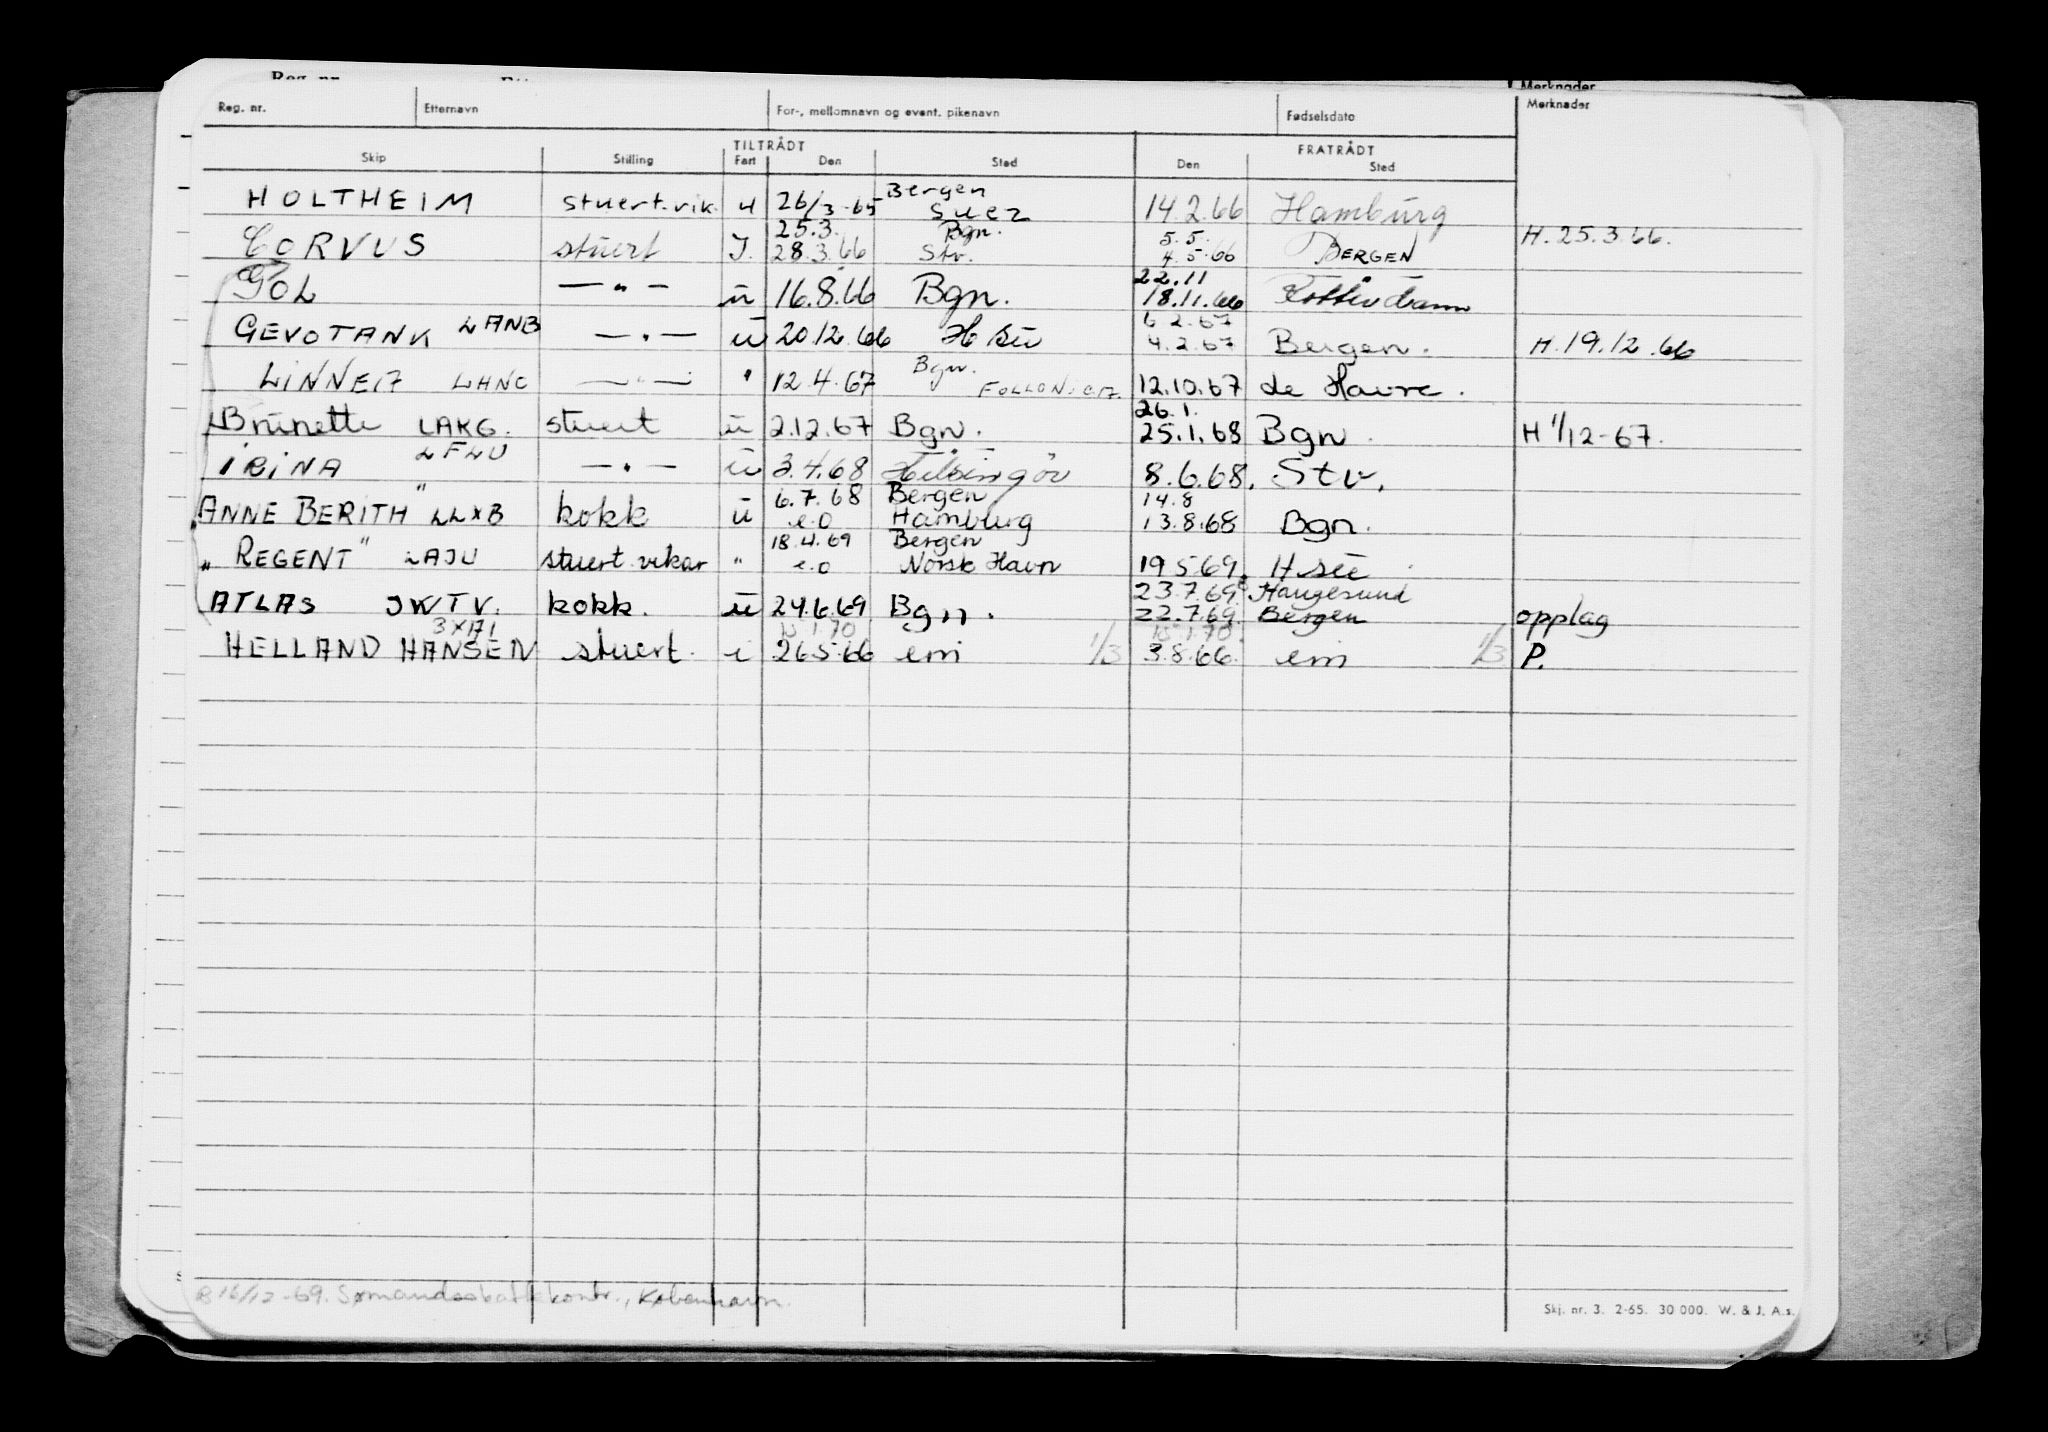 Reg. nr. Merknader
Reg. nr. Etternavn For-, mellomnavn og event. pikenavn Fødselsdato Merknader
TILTRÅDT FRATRÅDT
Skip Stilling Fart Den Sted Den Sted
Bergen
HOLTHEIM stuert.vik. u 26/3-65 Suez 14.2.66 Hamburg
25.3. Bgn. 5.5. H. 25.3.66.
CORVUS stuert J. 28.3.66 Stv. 4.5.66 BERGEN
22.11
GOL — " — ü 16.8.66 Bgn. 18.11.66 Rotterdam
LANB 6.2.67
GEVOTANK — " — ü 20.12.66 H sü 4.2.67 Bergen. H. 19.12.66
Bgn.
LINNEA LHNC — " — " 12.4.67 FOLLONICA. 12.10.67 de Havre.
26.1.
Brunette LAKG. stuert ü 2.12.67 Bgn. 25.1.68 Bgn. H 1/12-67.
LFLU
IRINA — " — ü 3.4.68 Helsingör 8.6.68. Stv.
" 6.7.68 Bergen 14.8
ANNE BERITH LLXB kokk ü e.o Hamburg 13.8.68 Bgn.
18.4.69 Bergen
" REGENT " LAJU stuert.vikar " e.o Norsk Havn 19.5.69. H sü
23.7.69 Haugesund
ATLAS JWTV. kokk. ü 24.6.69 Bgn. 22.7.69. Bergen opplag
3XA1 15.1.70 15.1.70.
HELLAND HANSEN stuert. i 26.5.66 em 1/3 3.8.66. em 1/3 P.
B 16/12-69. Sømandsskattekontr., København.
Skj. nr. 3. 2-65. 30 000. W. & J. A.s.